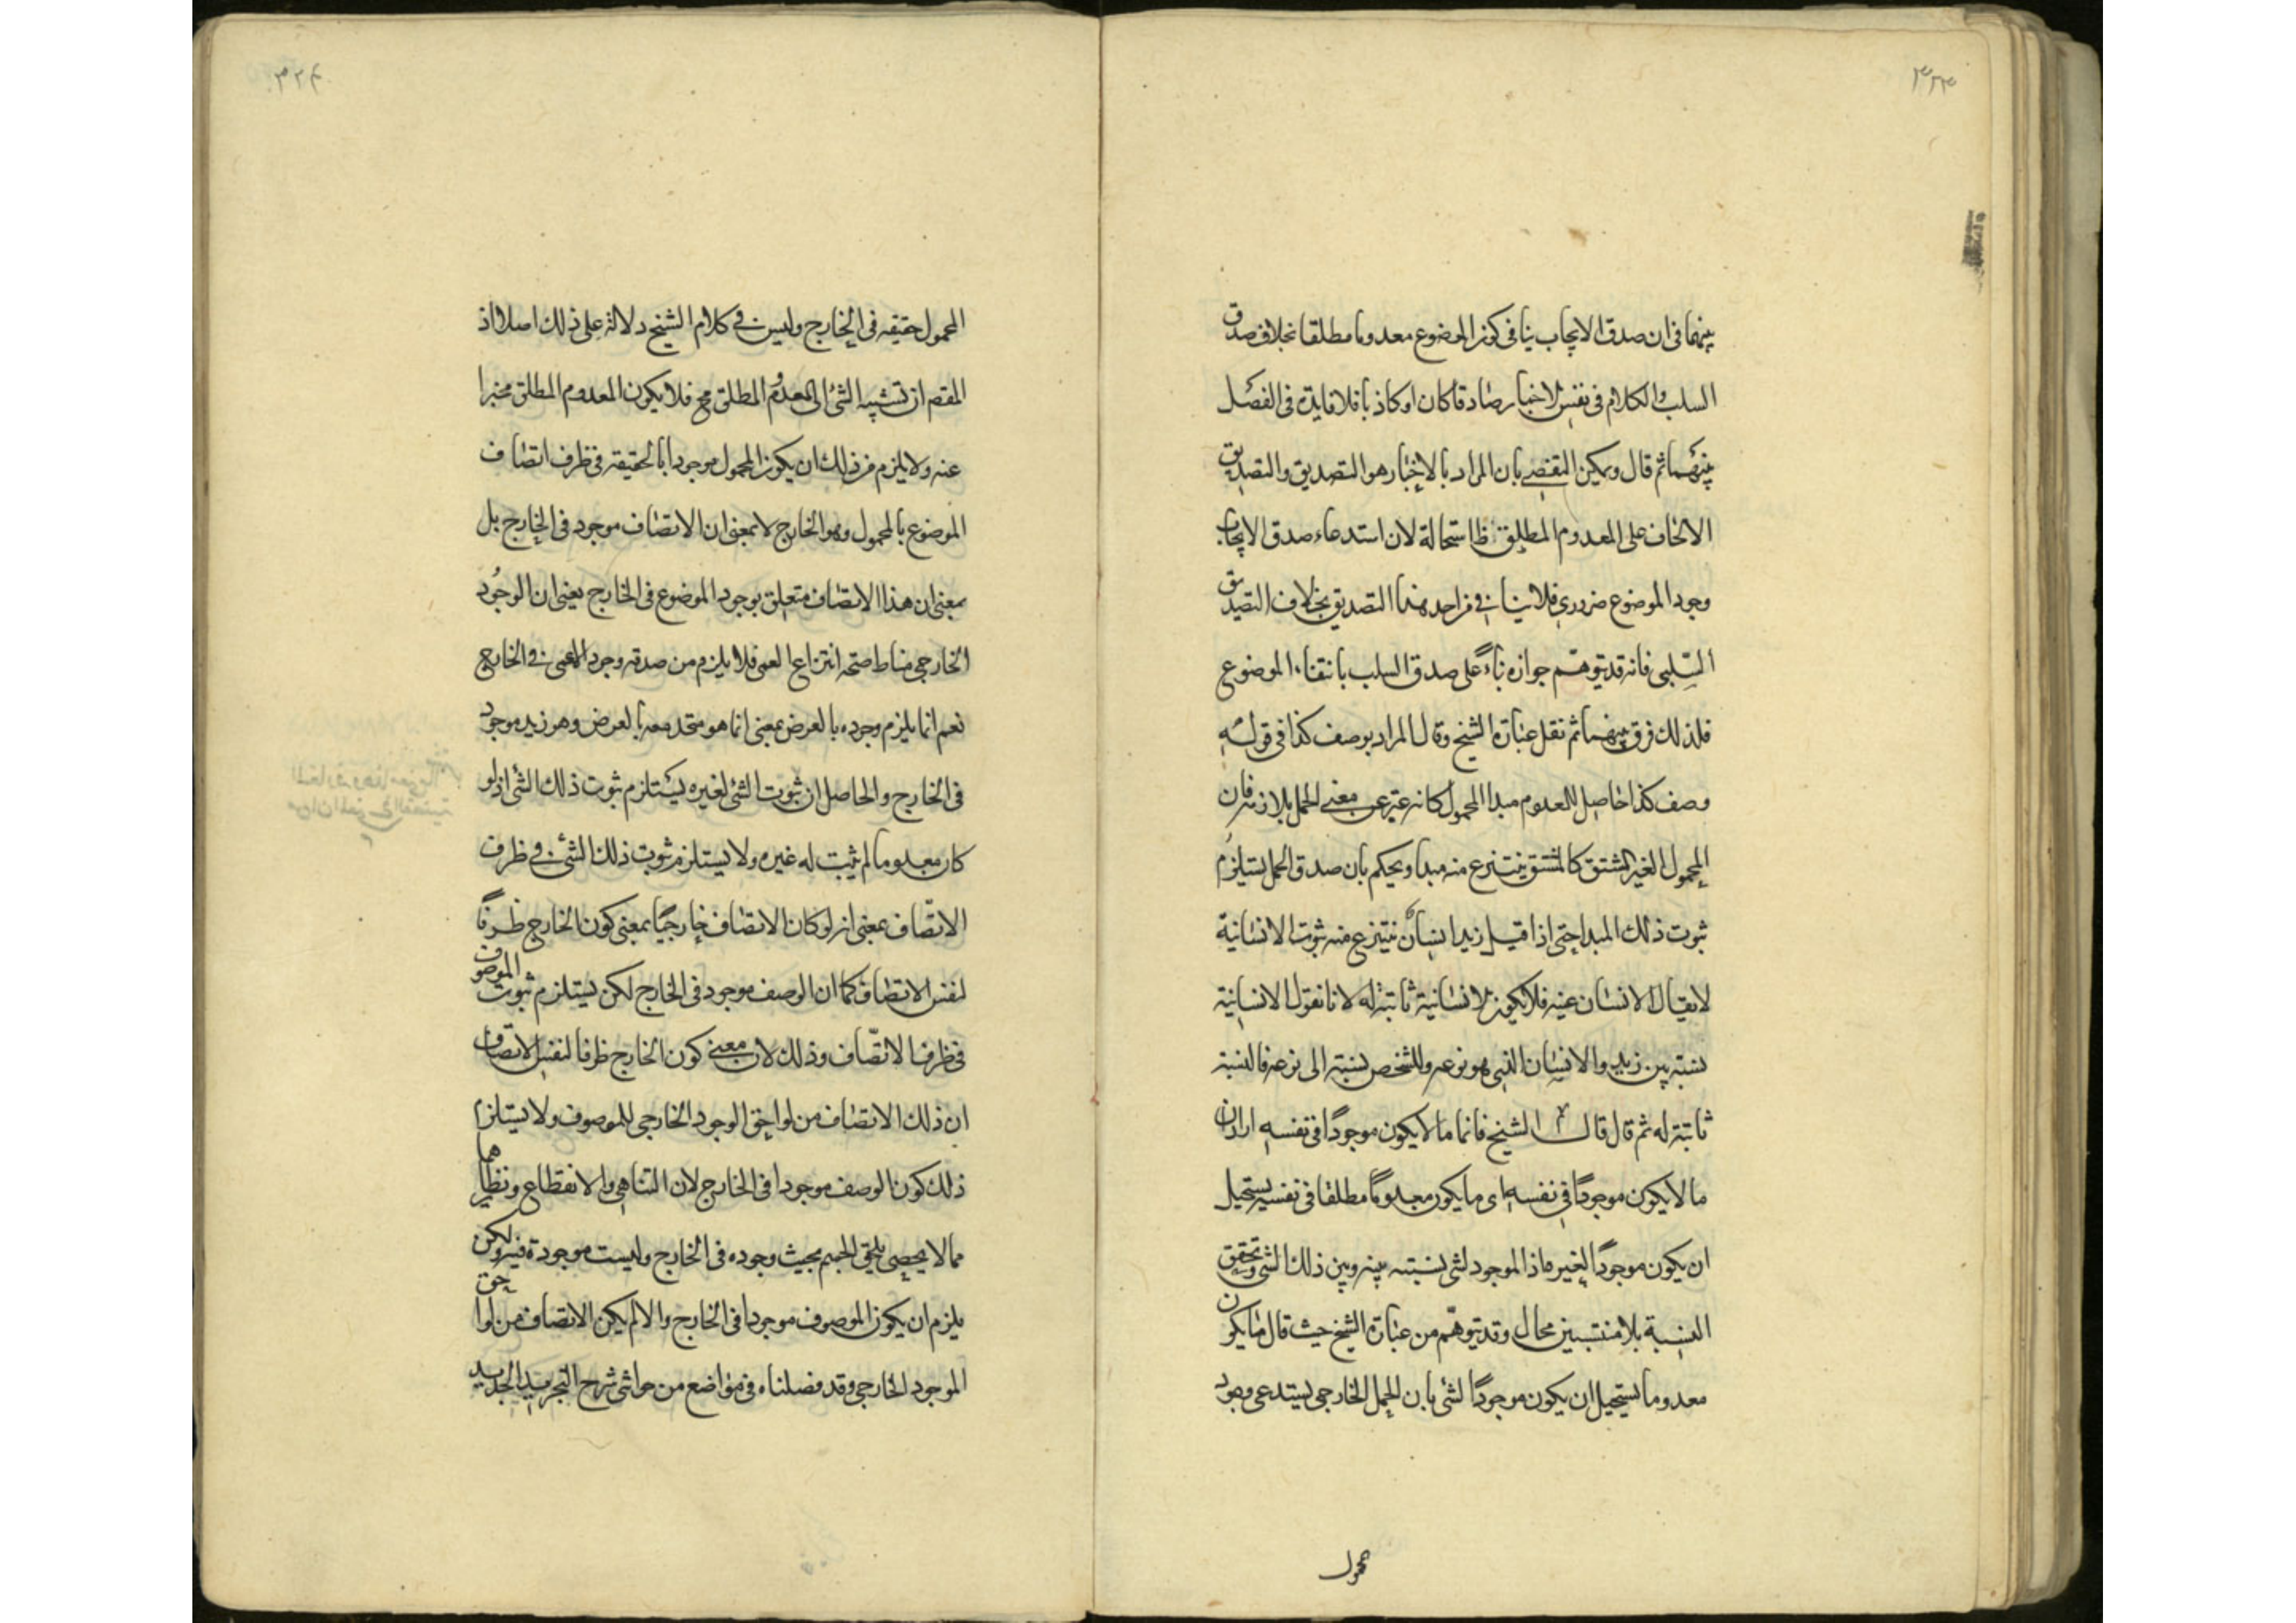 ٣٢٣
بينهما فى ان صدق الايجاب ينافى كون الموضوع معدوما مطلقا بخلاف صدق
السلب والكلام فى نفس الاخبار صادقا كان او كاذبا فلا فايدة فى الفصل
بينهما ثم قال ويمكن التفصى بان المراد بالاخبار هو التصديق والتصديق
الايجابى على المعدوم المطلق ظ استحالة لان استدعاء صدق الايجاب
وجود الموضوع ضرورى فلا يتاتى فى من احد هذا التصديق بخلاف التصديق
السّلبى فانه قد يتوهّم جوازه بناءً على صدق السلب بانتفاء الموضوع
فلذلك فرق بينهما ثم نقل عبارة الشيخ وقال المراد بوصف كذا فى قوله
وصف كذا حاصل للمعدوم مبدا المحمول كانه عبر عن معنى الحمل بلازمه فان
المحمول الغير المشتق كالمشتق ينتزع منه مبدا ويحكم بان صدق الحمل يستلزم
ثبوت ذلك المبدا حتى اذا قيل زيد انسان ينتزع منه ثبوت الانسانية
لا يقال الانسان عينه فلا يكون الانسانية ثابتة له لانا نقول الانسانية
نسبة بين زيد والانسان الذى هو نوعه وللشخص نسبة الى نوعه فالنسبة
ثابتة له ثم قال قال الشيخ فانما ما لا يكون موجودًا فى نفسه اراد ان
ما لا يكون موجودًا فى نفسه اى ما يكون معدومًا مطلقا فى نفسه يستحيل
ان يكون موجودًا لغيره اذ الموجود لشى نسبته بينه وبين ذلك الشى وتحقق
النسبة بلا منتسبين محال وقد يتوهّم من عبارة الشيخ حيث قال ما يكون
معدوما يستحيل ان يكون موجودًا لشى بان الحمل الخارجى يستدعى وجود
محمول
٣٢٤
المحمول حقيقه فى الخارج وليس فى كلام الشيخ دلالة على ذلك اصلا اذ
المقصم ان تشبيه الشئ الى المعدوم المطلق مح فلا يكون المعدوم المطلق مخبرا
عنه ولا يلزم من ذلك ان يكون المحمول موجودا بالحقيقة فى ظرف اتصاف
الموضوع بالمحمول وهو الخارج لا بمعنى ان الاتصاف موجود فى الخارج بل
بمعنى ان هذا الاتصاف متعلق بوجود الموضوع فى الخارج يعنى ان الوجود
الخارجى مناط صحة انتزاع العمى فلا يلزم من صدقه وجود العمى فى الخارج
نعم انما يلزم وجوده بالعرض بمعنى انما هو متحد معه بالعرض وهو زيد موجود
فى الخارج والحاصل ان ثبوت الشئ لغيره يستلزم ثبوت ذلك الشئ اذ لو
كان معدوما لم يثبت له غيره ولا يستلزم ثبوت ذلك الشئ فى ظرف
الاتّصاف بمعنى انه لو كان الاتصاف خارجيًا بمعنى كون الخارج ظرفًا
لنفس الاتصاف كما ان الوصف موجود فى الخارج لكن يستلزم ثبوت الموصوف
فى ظرف الاتّصاف وذلك لان معنى كون الخارج ظرفا لنفس الاتصاف
ان ذلك الاتصاف من لواحق الوجود الخارجى للموصوف ولا يستلزم
ذلك كون الوصف موجودا فى الخارج لان التناهى والانقطاع ونظايرهما
مما لا يحصى يلحق الجسم بحيث وجوده فى الخارج وليست موجودة فيه ولكن
يلزم ان يكون الموصوف موجودا فى الخارج والا لم يكن الاتصاف من لواحق
الموجود الخارجى وقد فصلناه فى مواضع من حواشى شرح التجريد الجديد